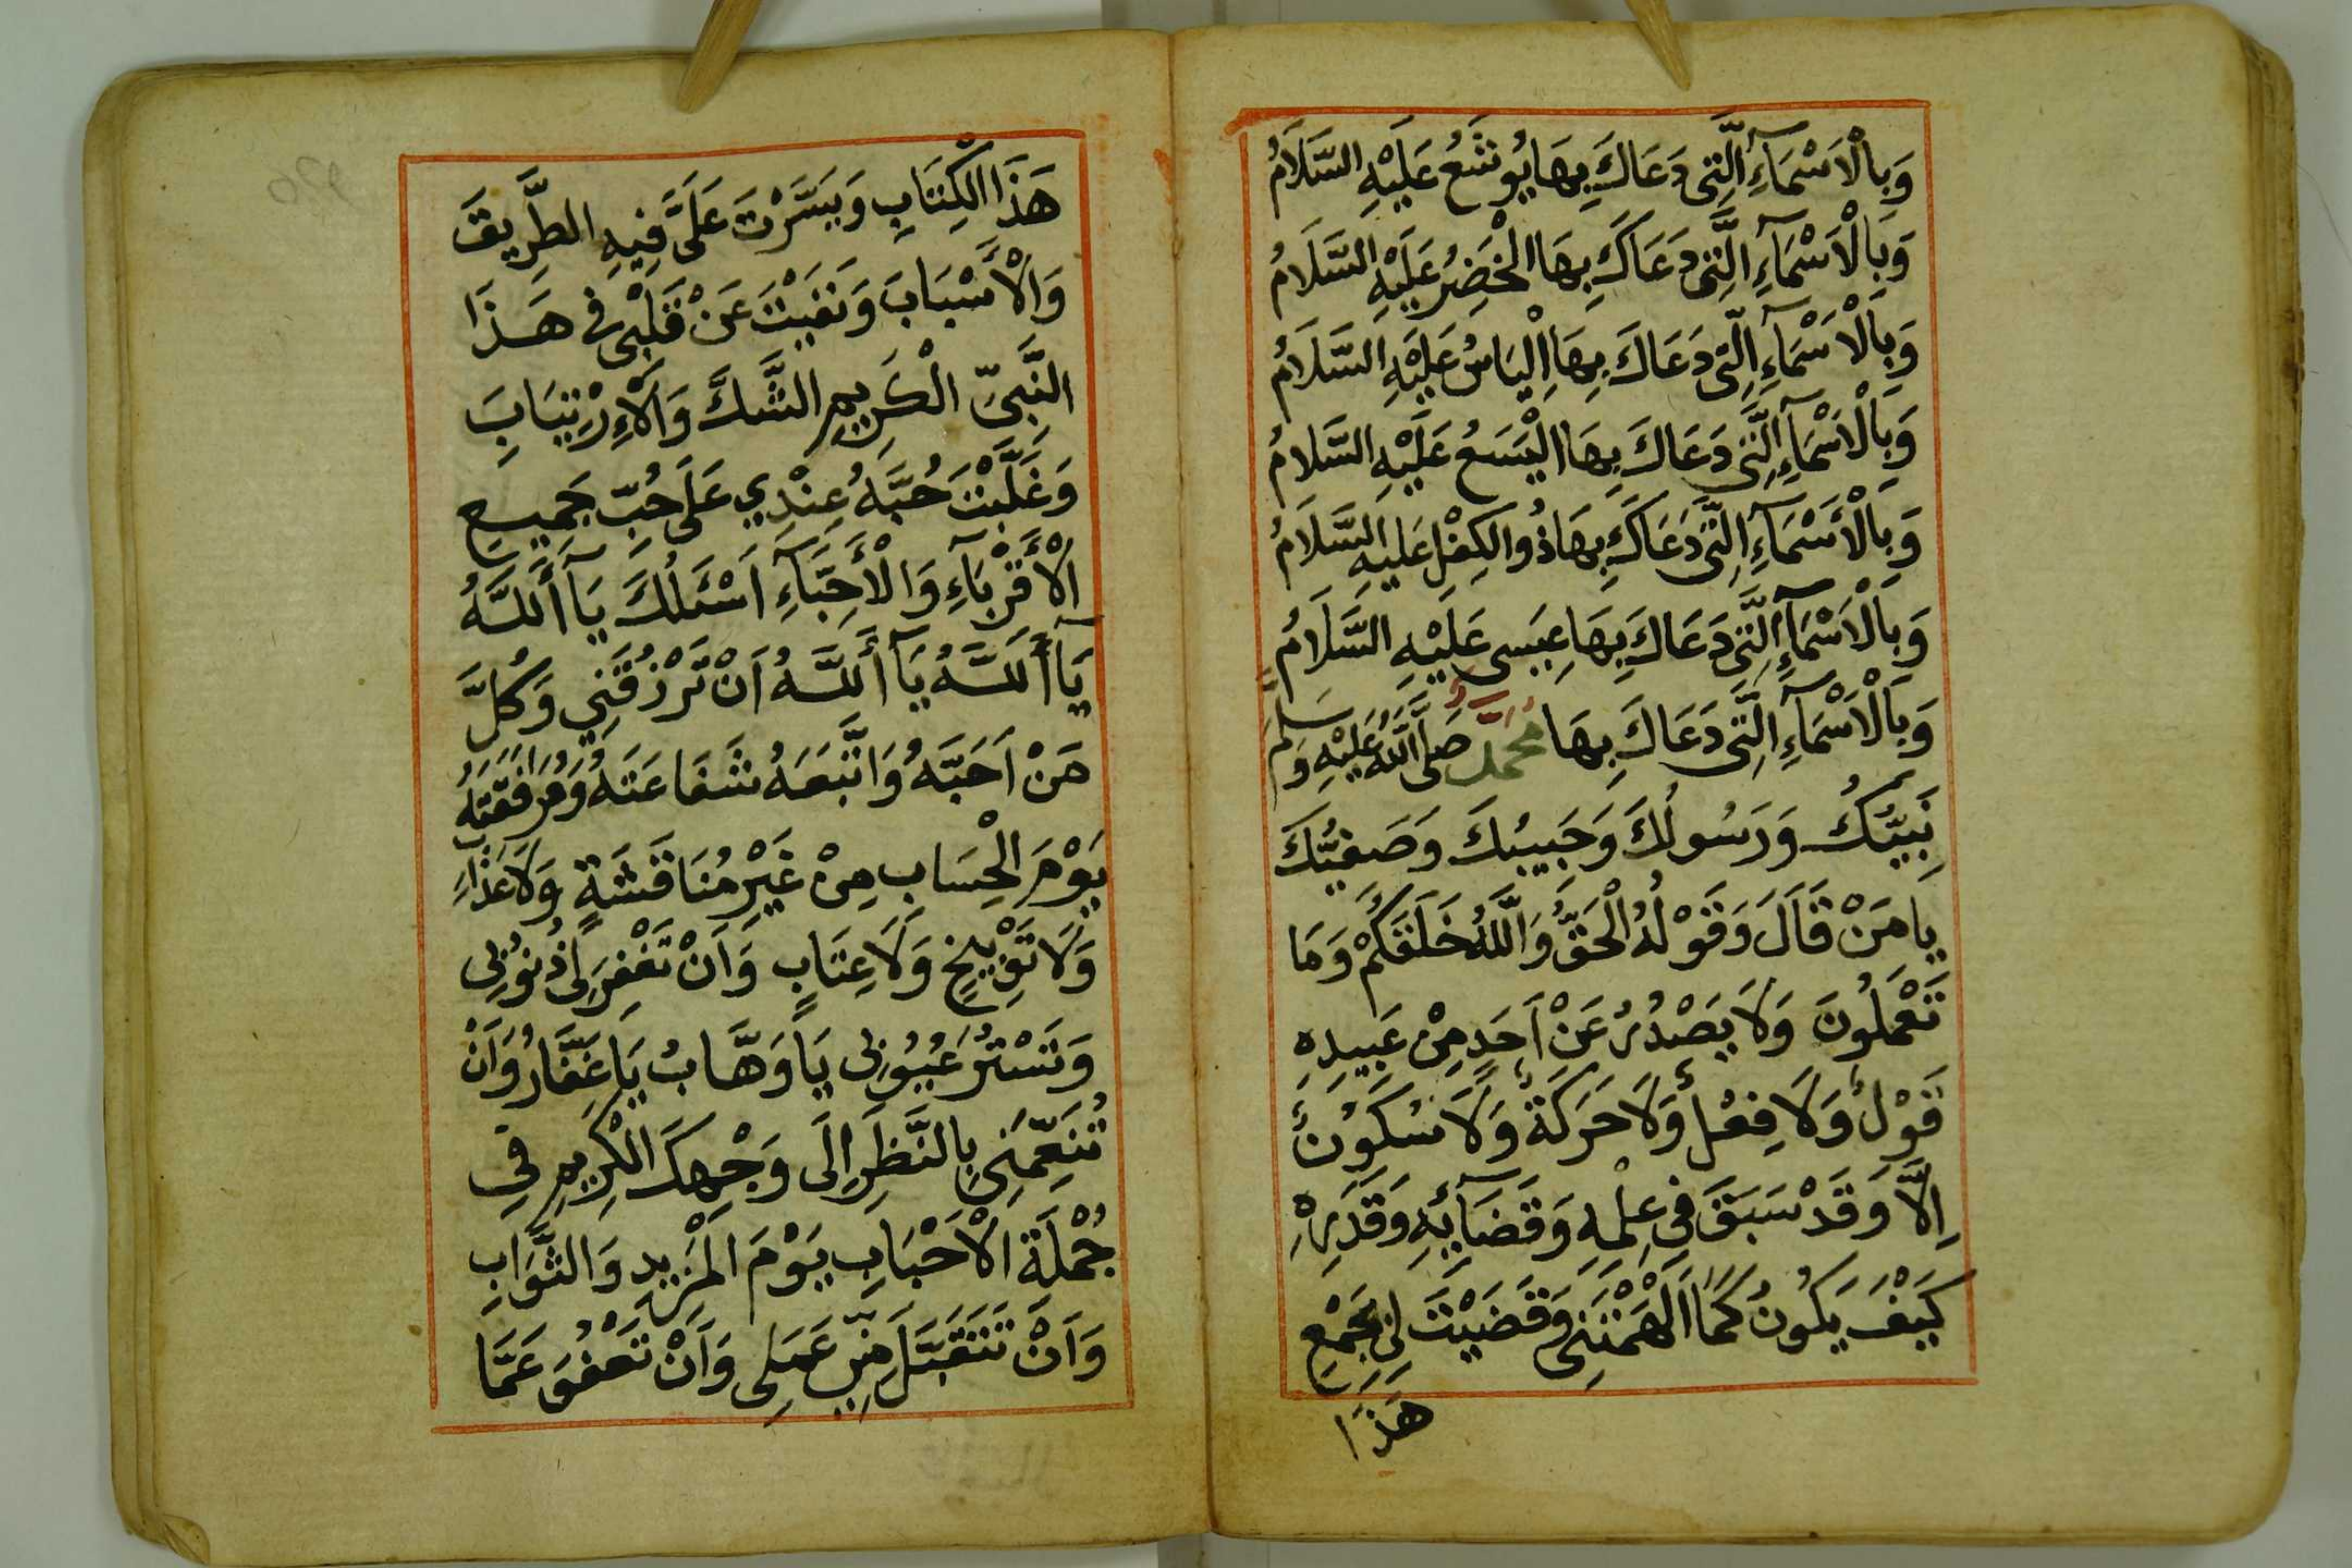 وَبِالْاَسْمَآءِ الَّتِى دَعَاكَ بِهَا يُوشَعُ عَلَيْهِ السَّلَامُ
وَبِالْاَسْمَآءِ الَّتِى دَعَاكَ بِهَا الْخَضِرُ عَلَيْهِ السَّلَامُ
وَبِالْاَسْمَآءِ الَّتِى دَعَاكَ بِهَا اِلْيَاسُ عَلَيْهِ السَّلَامُ
وَبِالْاَسْمَآءِ الَّتِى دَعَاكَ بِهَا الْيَسَعُ عَلَيْهِ السَّلَامُ
وَبِالْاَسْمَآءِ الَّتِى دَعَاكَ بِهَا ذُوالكِفْلِ عَلَيْهِ السَّلَامُ
وَبِالْاَسْمَآءِ الَّتِى دَعَاكَ بِهَا عِيسَى عَلَيْهِ السَّلَامُ
وَبِالْاَسْمَآءِ الَّتِى دَعَاكَ بِهَا مُحَمَّدٌ صَلَّى اللَّهُ عَلَيْهِ وَسَلَّمَ
نَبِيُّكَ وَرَسُولُكَ وَحَبِيبُكَ وَصَفِيُّكَ
يَا مَنْ قَالَ وَقَوْلُهُ الْحَقُّ وَاللَّهُ خَلَقَكُمْ وَمَا
تَعْمَلُونَ وَلَا يَصْدُرُ عَنْ اَحَدٍ مِنْ عَبِيدِهِ
قَوْلٌ وَلَا فِعْلٌ وَلَا حَرَكَةٌ وَلَا سُكُونٌ
اِلَّا وَقَدْ سَبَقَ فِى عِلْمِهِ وَقَضَآئِهِ وَقَدَرِهِ
كَيْفَ يَكُونُ كَمَا اَلْهَمْتَنِى وَقَضَيْتَ لِى بِجَمْعِ
هَذَا
هَذَا الْكِتَابِ وَيَسَّرْتَ عَلَىَّ فِيهِ الطَّرِيقَ
وَالْأَسْبَابَ وَنَفَيْتَ عَنْ قَلْبِى فِى هَذَا
النَّبِىِّ الْكَرِيمِ الشَّكَّ وَالْاِرْتِيَابَ
وَغَلَّبْتَ حُبَّهُ عِنْدِي عَلَى حُبِّ جَمِيعِ
الْأَقْرِبَآءِ وَالْأَحِبَّآءِ اَسْئَلُكَ يَآ أَللَّهُ
يَآ أَللَّهُ يَآ أَللَّهُ اَنْ تَرْزُقَنِي وَكُلَّ
مَنْ اَحَبَّهُ وَاتَّبَعَهُ شَفَاعَتَهُ وَمُرَافَقَتَهُ
يَوْمَ الْحِسَابِ مِنْ غَيْرِ مُنَاقَشَةٍ وَلَا عَذَابٍ
وَلَا تَوْبِيخٍ وَلَا عِتَابٍ وَاَنْ تَغْفِرَ لِى ذُنُوبِى
وَتَسْتُرَ عُيُوبِى يَا وَهَّابُ يَا غَفَّارُ وَاَنْ
تُنَعِّمَنِى بِالنَّظَرِ اِلَى وَجْهِكَ الْكَرِيمِ فِى
جُمْلَةِ الْاَحْبَابِ يَوْمَ الْمَزِيدِ وَالثَّوَابِ
وَاَنْ تَتَقَبَّلَ مِنِّى عَمَلِى وَاَنْ تَعْفُوَ عَمَّا